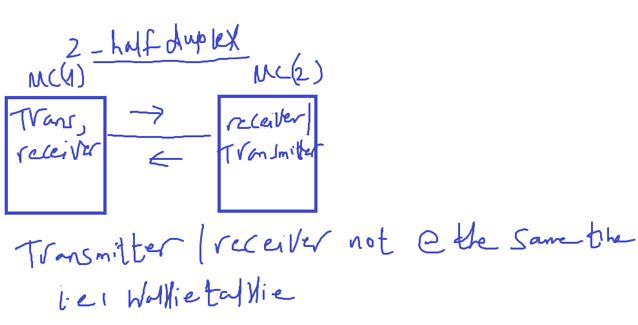 2 - half duplex
MC(1) MC(2)
Trans, receiver/
receiver Transmitter
Transmitter / receiver not @ the same time
i.e: Walkie talkie